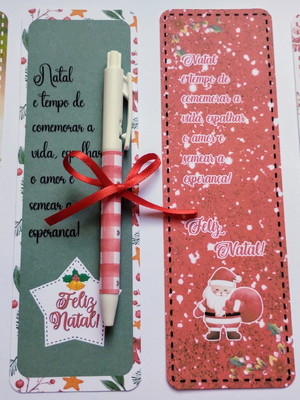 Natal
é tempo de
comemorar a
vida, espalhar
o amor e
semear a
esperança!
Feliz
Natal!
Natal
é tempo de
comemorar a
vida, espalhar
o amor e
semear a
esperança!
Feliz
Natal!